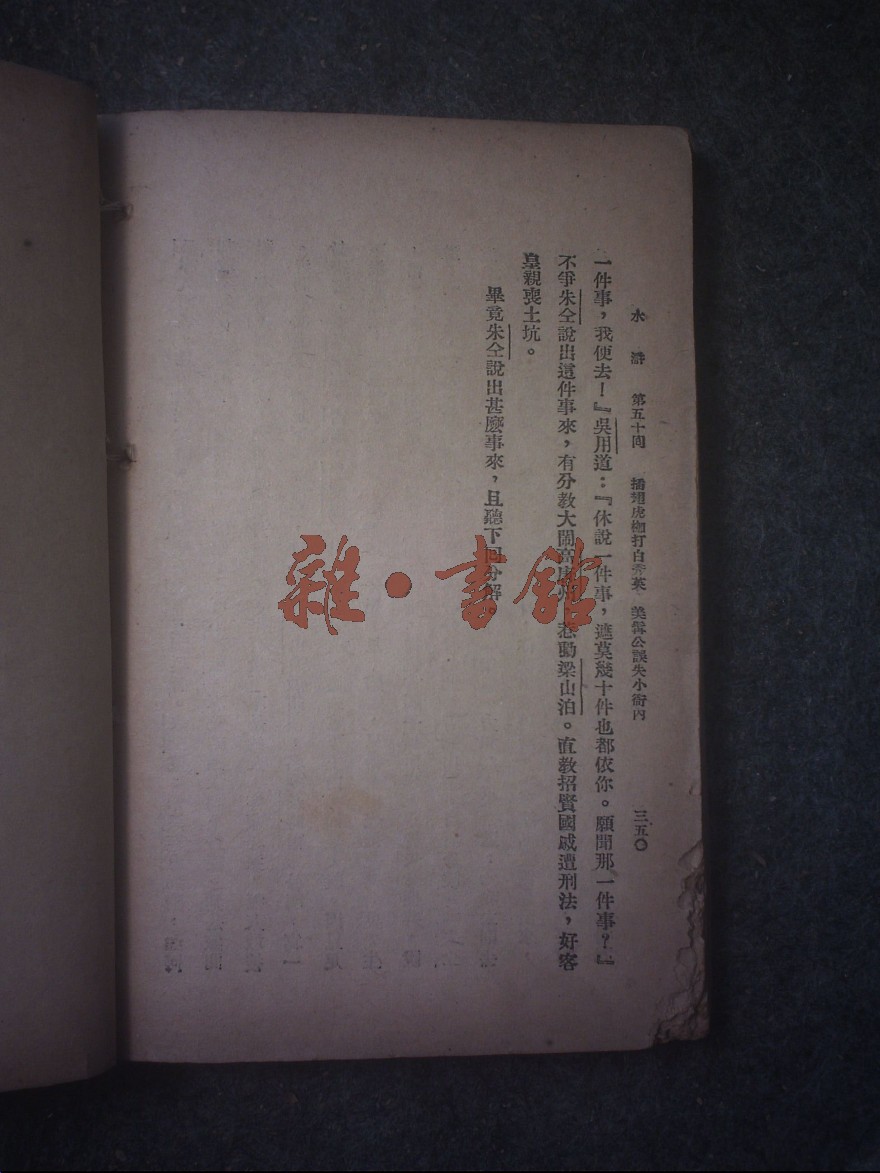 水滸 第五十回 插翅虎枷打白秀英 美髯公誤失小衙內 三五〇
一件事，我便去！』吳用道：『休說一件事，遮莫幾十件也都依你。願聞那一件事？』
不爭朱仝說出這件事來，有分教大鬧高唐州，惹動梁山泊。直教招賢國戚遭刑法，好客
皇親喪土坑。
畢竟朱仝說出甚麽事來，且聽下回分解。
雜·書館